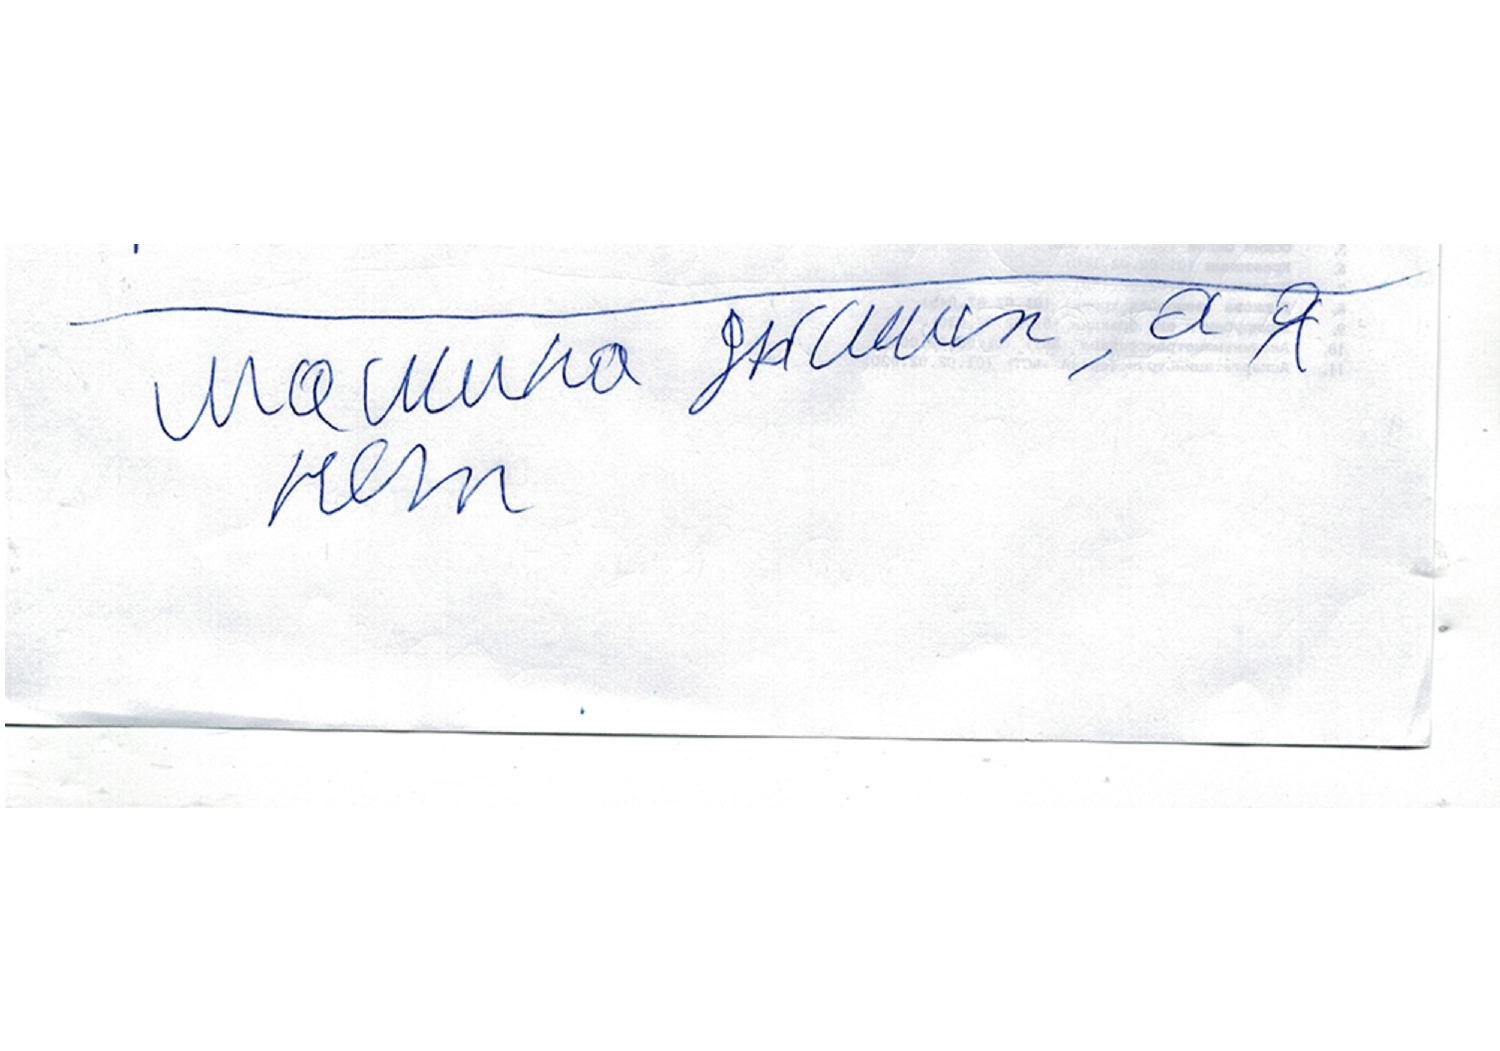 машина дышит, а я
нет